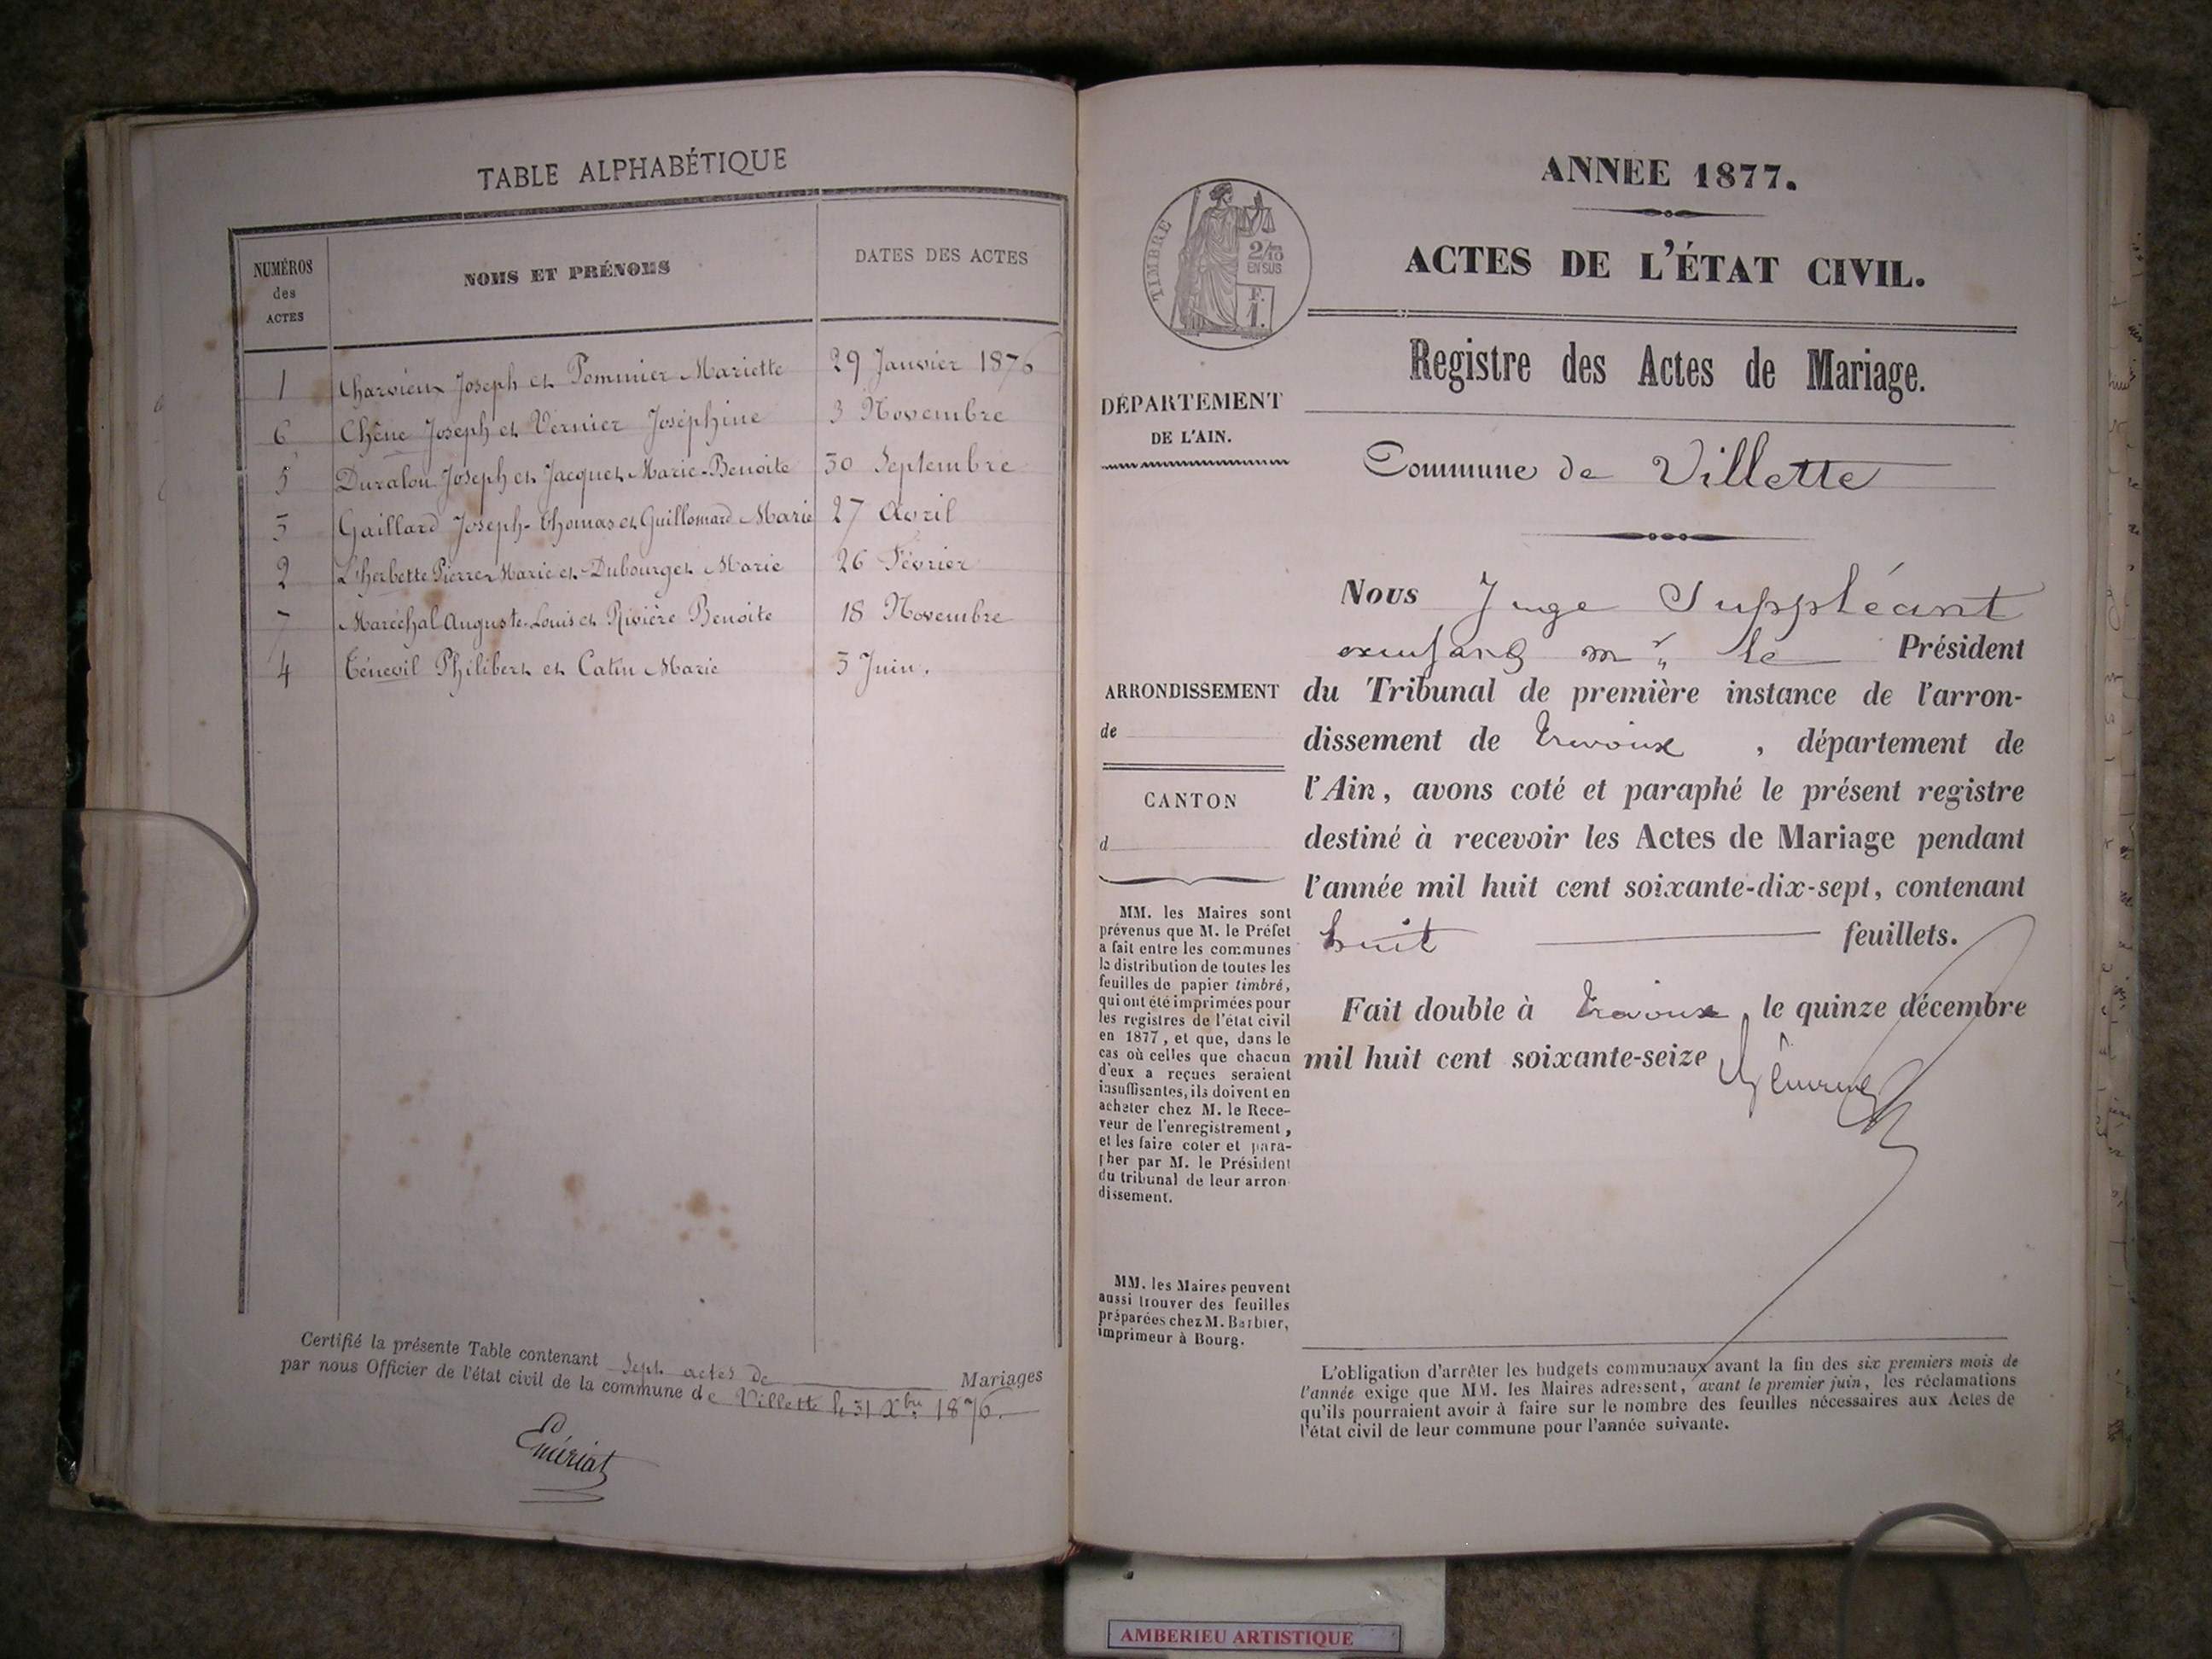 TABLE ALPHABÉTIQUE
NUMÉROS des ACTES
NOMS ET PRÉNOMS
DATES DES ACTES
1 Charvieux Joseph et Pommier Mariette 29 Janvier 1876
6 Chêne Joseph et Vernier Joséphine 3 Novembre
5 Joseph et Jacquet Marie-Benoite 30 Septembre
3 Gaillard Joseph-Thomas et Guillomard Marie 27 Avril
2 L'herbette Pierre Marie et Dubourget Marie 26 Février
7 Maréchal Auguste-Louis et Rivière Benoite 18 Novembre
4 Philibert et Catin Marie 3 Juin.
Certifié la présente Table contenant Sept actes de Mariages
par nous Officier de l'état civil de la commune de Villette le 31 Xbre 1876.
TIMBRE
2/10
EN SUS
F.
1.
ANNÉE 1877.
ACTES DE L'ÉTAT CIVIL.
Registre des Actes de Mariage.
DÉPARTEMENT
DE L'AIN.
Commune de Villette
ARRONDISSEMENT
de
CANTON
d
MM. les Maires sont
prévenus que M. le Préfet
a fait entre les communes
la distribution de toutes les
feuilles de papier timbré,
qui ont été imprimées pour
les registres de l'état civil
en 1877, et que, dans le
cas où celles que chacun
d'eux a reçues seraient
insuffisantes, ils doivent en
acheter chez M. le Rece-
veur de l'enregistrement,
et les faire coter et para-
pher par M. le Président
du tribunal de leur arron-
dissement.
MM. les Maires peuvent
aussi trouver des feuilles
préparées chez M. Barbier,
imprimeur à Bourg.
Nous Juge Suppléant
Mr le Président
du Tribunal de première instance de l'arron-
dissement de Trévoux, département de
l'Ain, avons coté et paraphé le présent registre
destiné à recevoir les Actes de Mariage pendant
l'année mil huit cent soixante-dix-sept, contenant
huit feuillets.
Fait double à Trévoux, le quinze décembre
mil huit cent soixante-seize
L'obligation d'arrêter les budgets communaux avant la fin des six premiers mois de
l'année exige que MM. les Maires adressent, avant le premier juin, les réclamations
qu'ils pourraient avoir à faire sur le nombre des feuilles nécessaires aux Actes de
l'état civil de leur commune pour l'année suivante.
AMBERIEU ARTISTIQUE